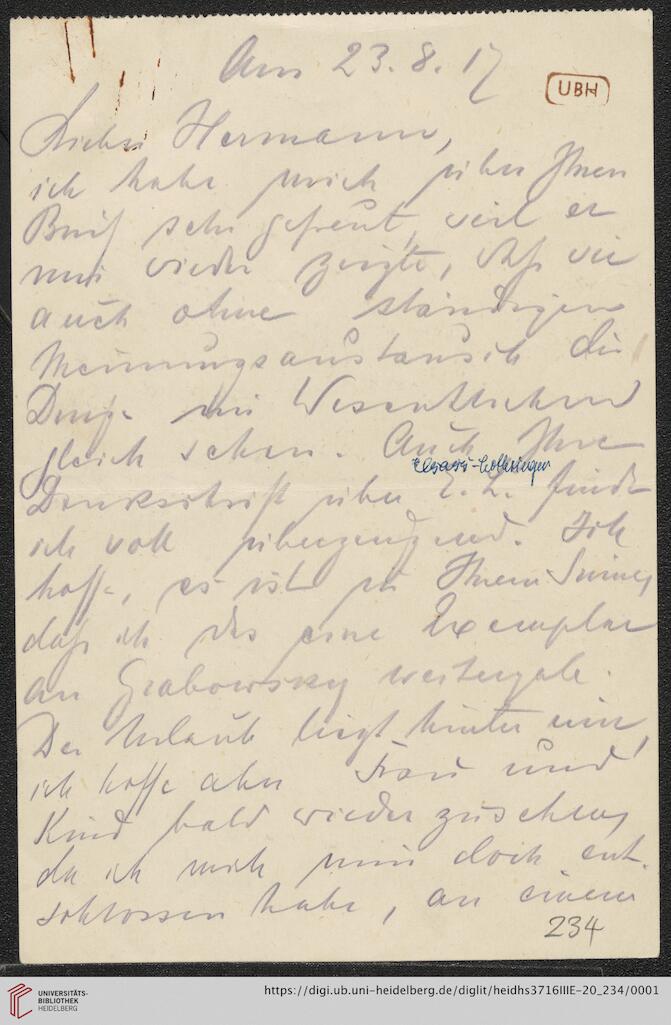 Am 23. 8. 17
UBH
Lieber Hermann,
ich habe mich über Ihren
Brief sehr gefreut, weil er
mir wieder zeigte, daß wir
auch ohne ständigen
Meinungsaustausch die
Dinge im Wesentlichen
gleich sehen. Auch Ihre
Elsass-Lothringen
Denkschrift über E. L. finde
ich voll überzeugend. Ich
hoffe, es ist in Ihrem Sinne,
daß ich das eine Exemplar
an Grabowsky weitergebe.
Der Urlaub liegt hinter mir,
ich hoffe aber Frau und
Kind bald wieder zu sehen,
da ich mich nun doch ent-
schlossen habe, an einem
234
UNIVERSITÄTS-
BIBLIOTHEK
HEIDELBERG
https://digi.ub.uni-heidelberg.de/diglit/heidhs3716IIIE-20_234/0001